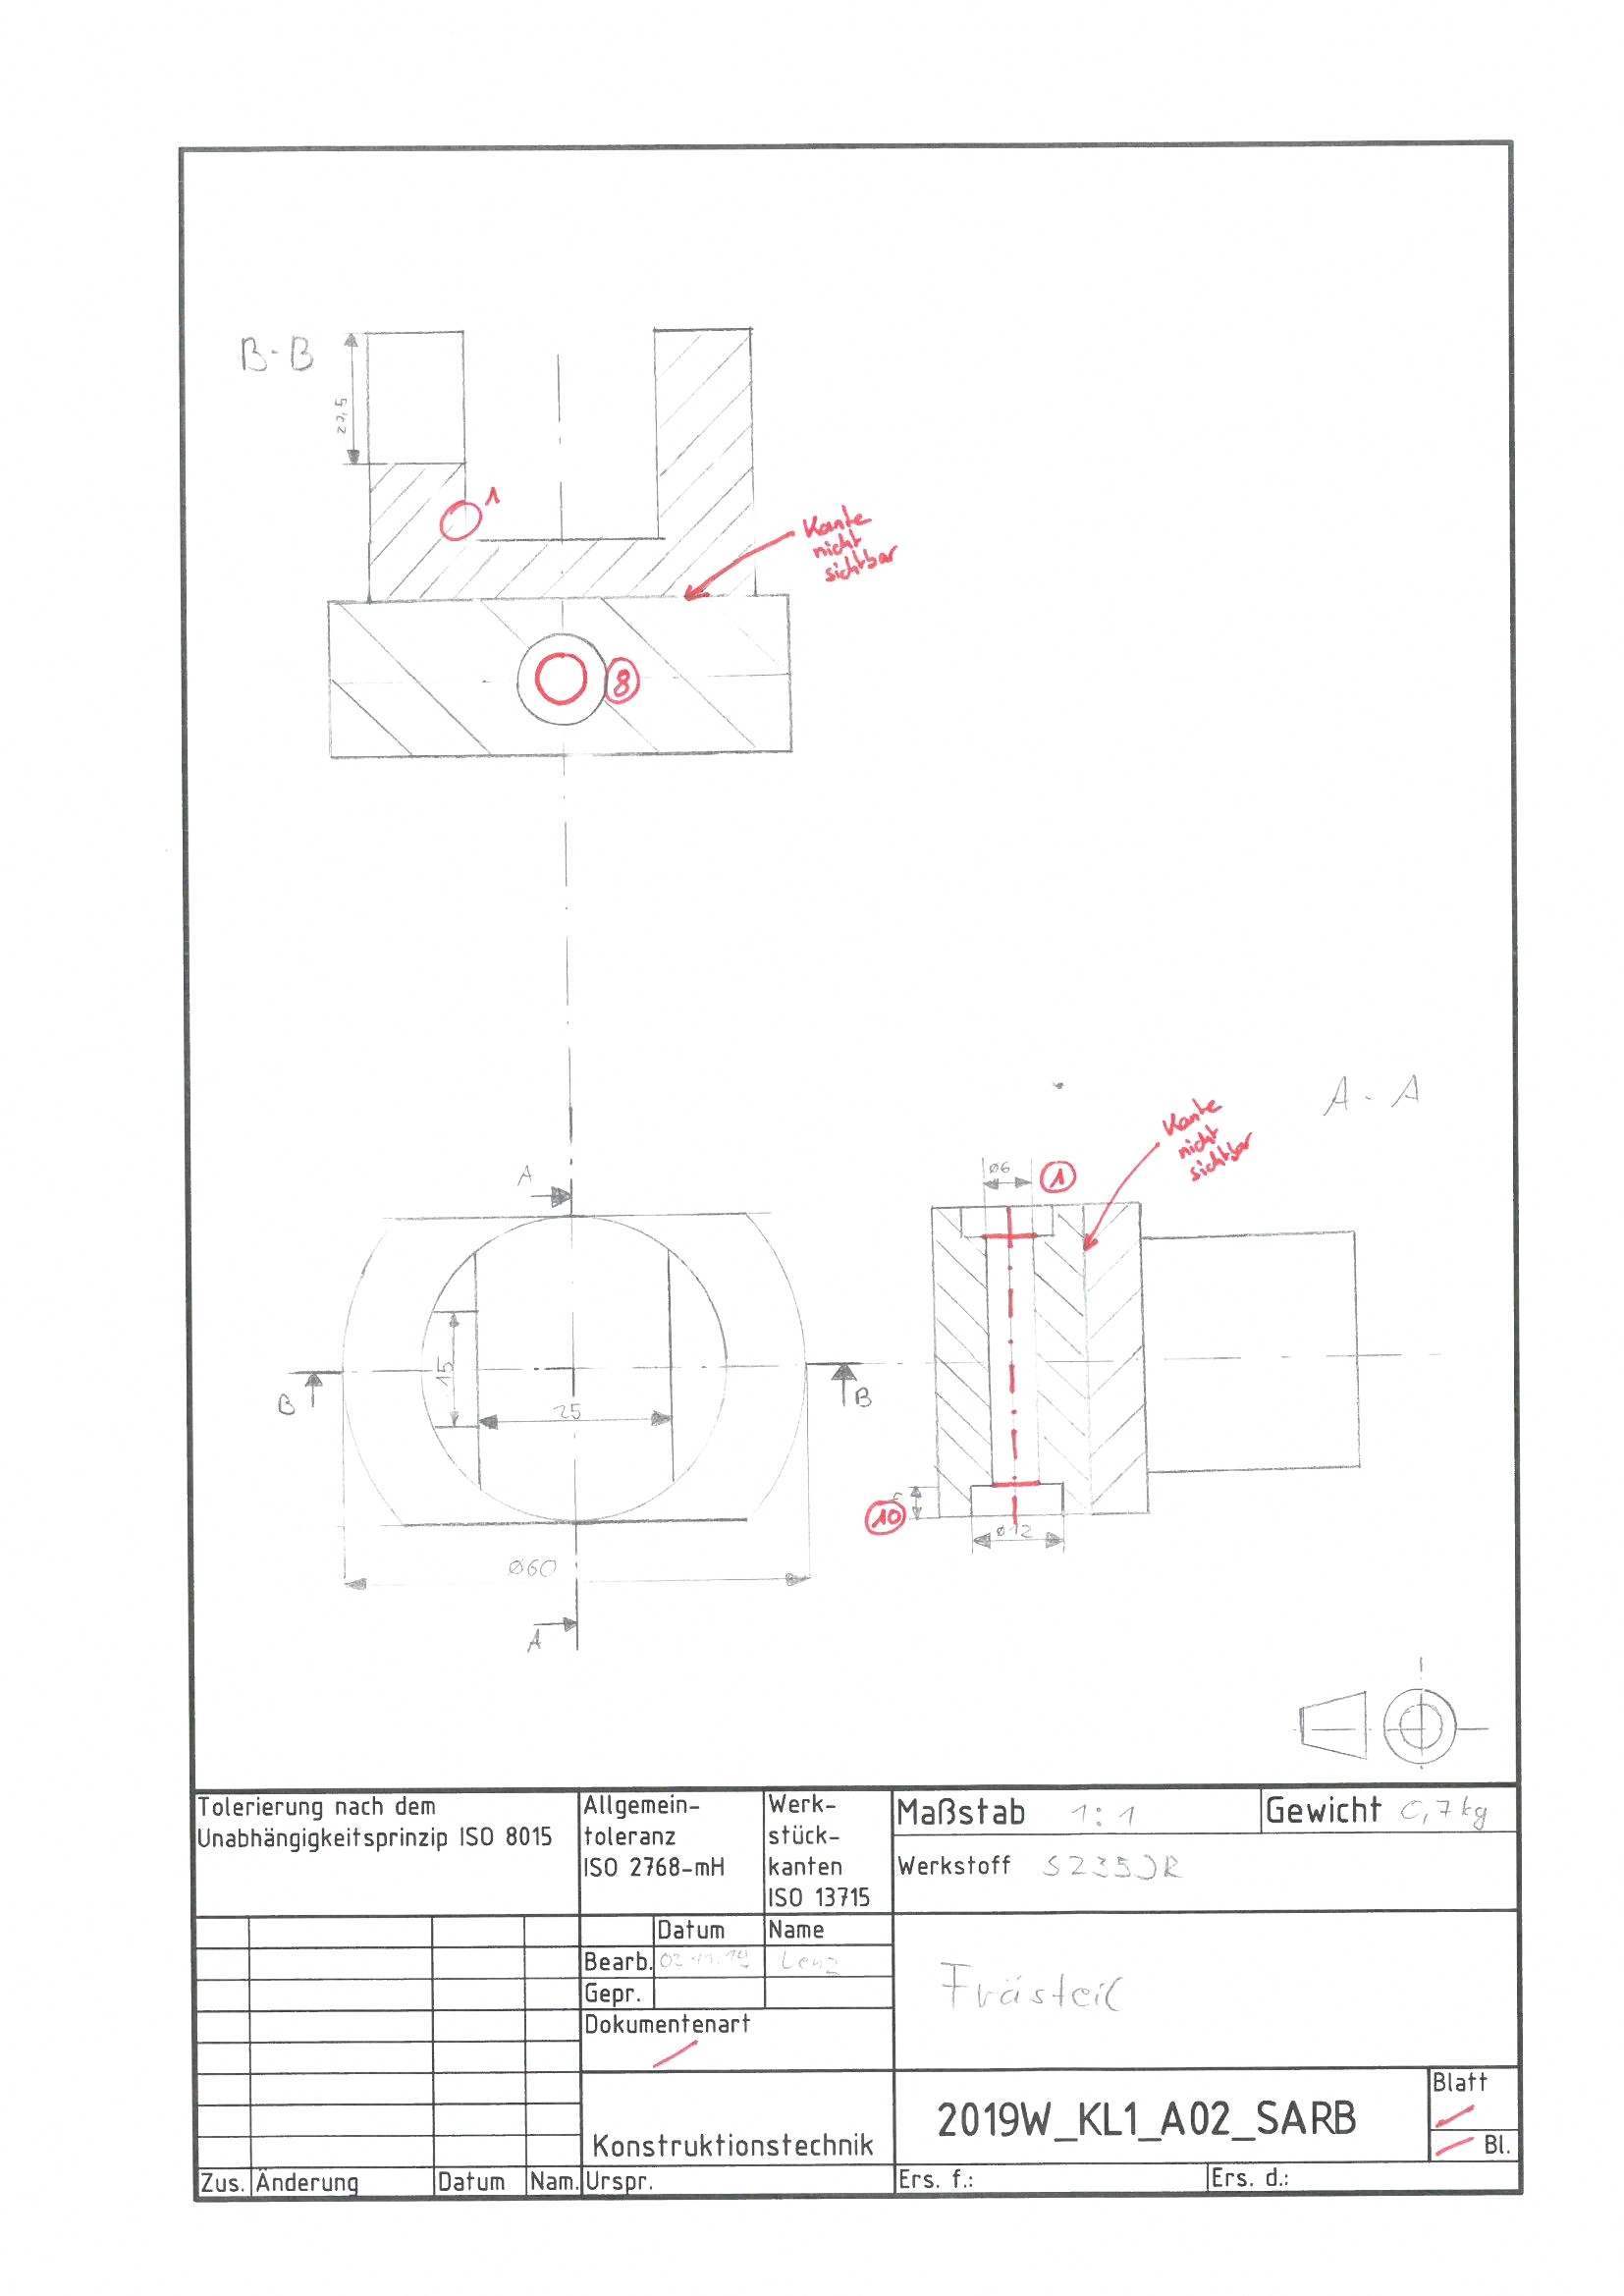 B-B
22,5
1
Kante
nicht
sichtbar
8
A - A
Kante
nicht
sichtbar
A
ø6
1
15
25
B
B
10
ø12
ø60
A
Tolerierung nach dem
Unabhängigkeitsprinzip ISO 8015
Allgemein-
toleranz
ISO 2768-mH
Werk-
stück-
kanten
ISO 13715
Maßstab 1:1
Gewicht 0,7kg
Werkstoff S235JR
Datum
Name
Bearb. Lenz
Gepr.
Dokumentenart
Frästeil
Konstruktionstechnik
2019W_KL1_A02_SARB
Blatt
Bl.
Zus.
Änderung
Datum
Nam.
Urspr.
Ers. f.:
Ers. d.: